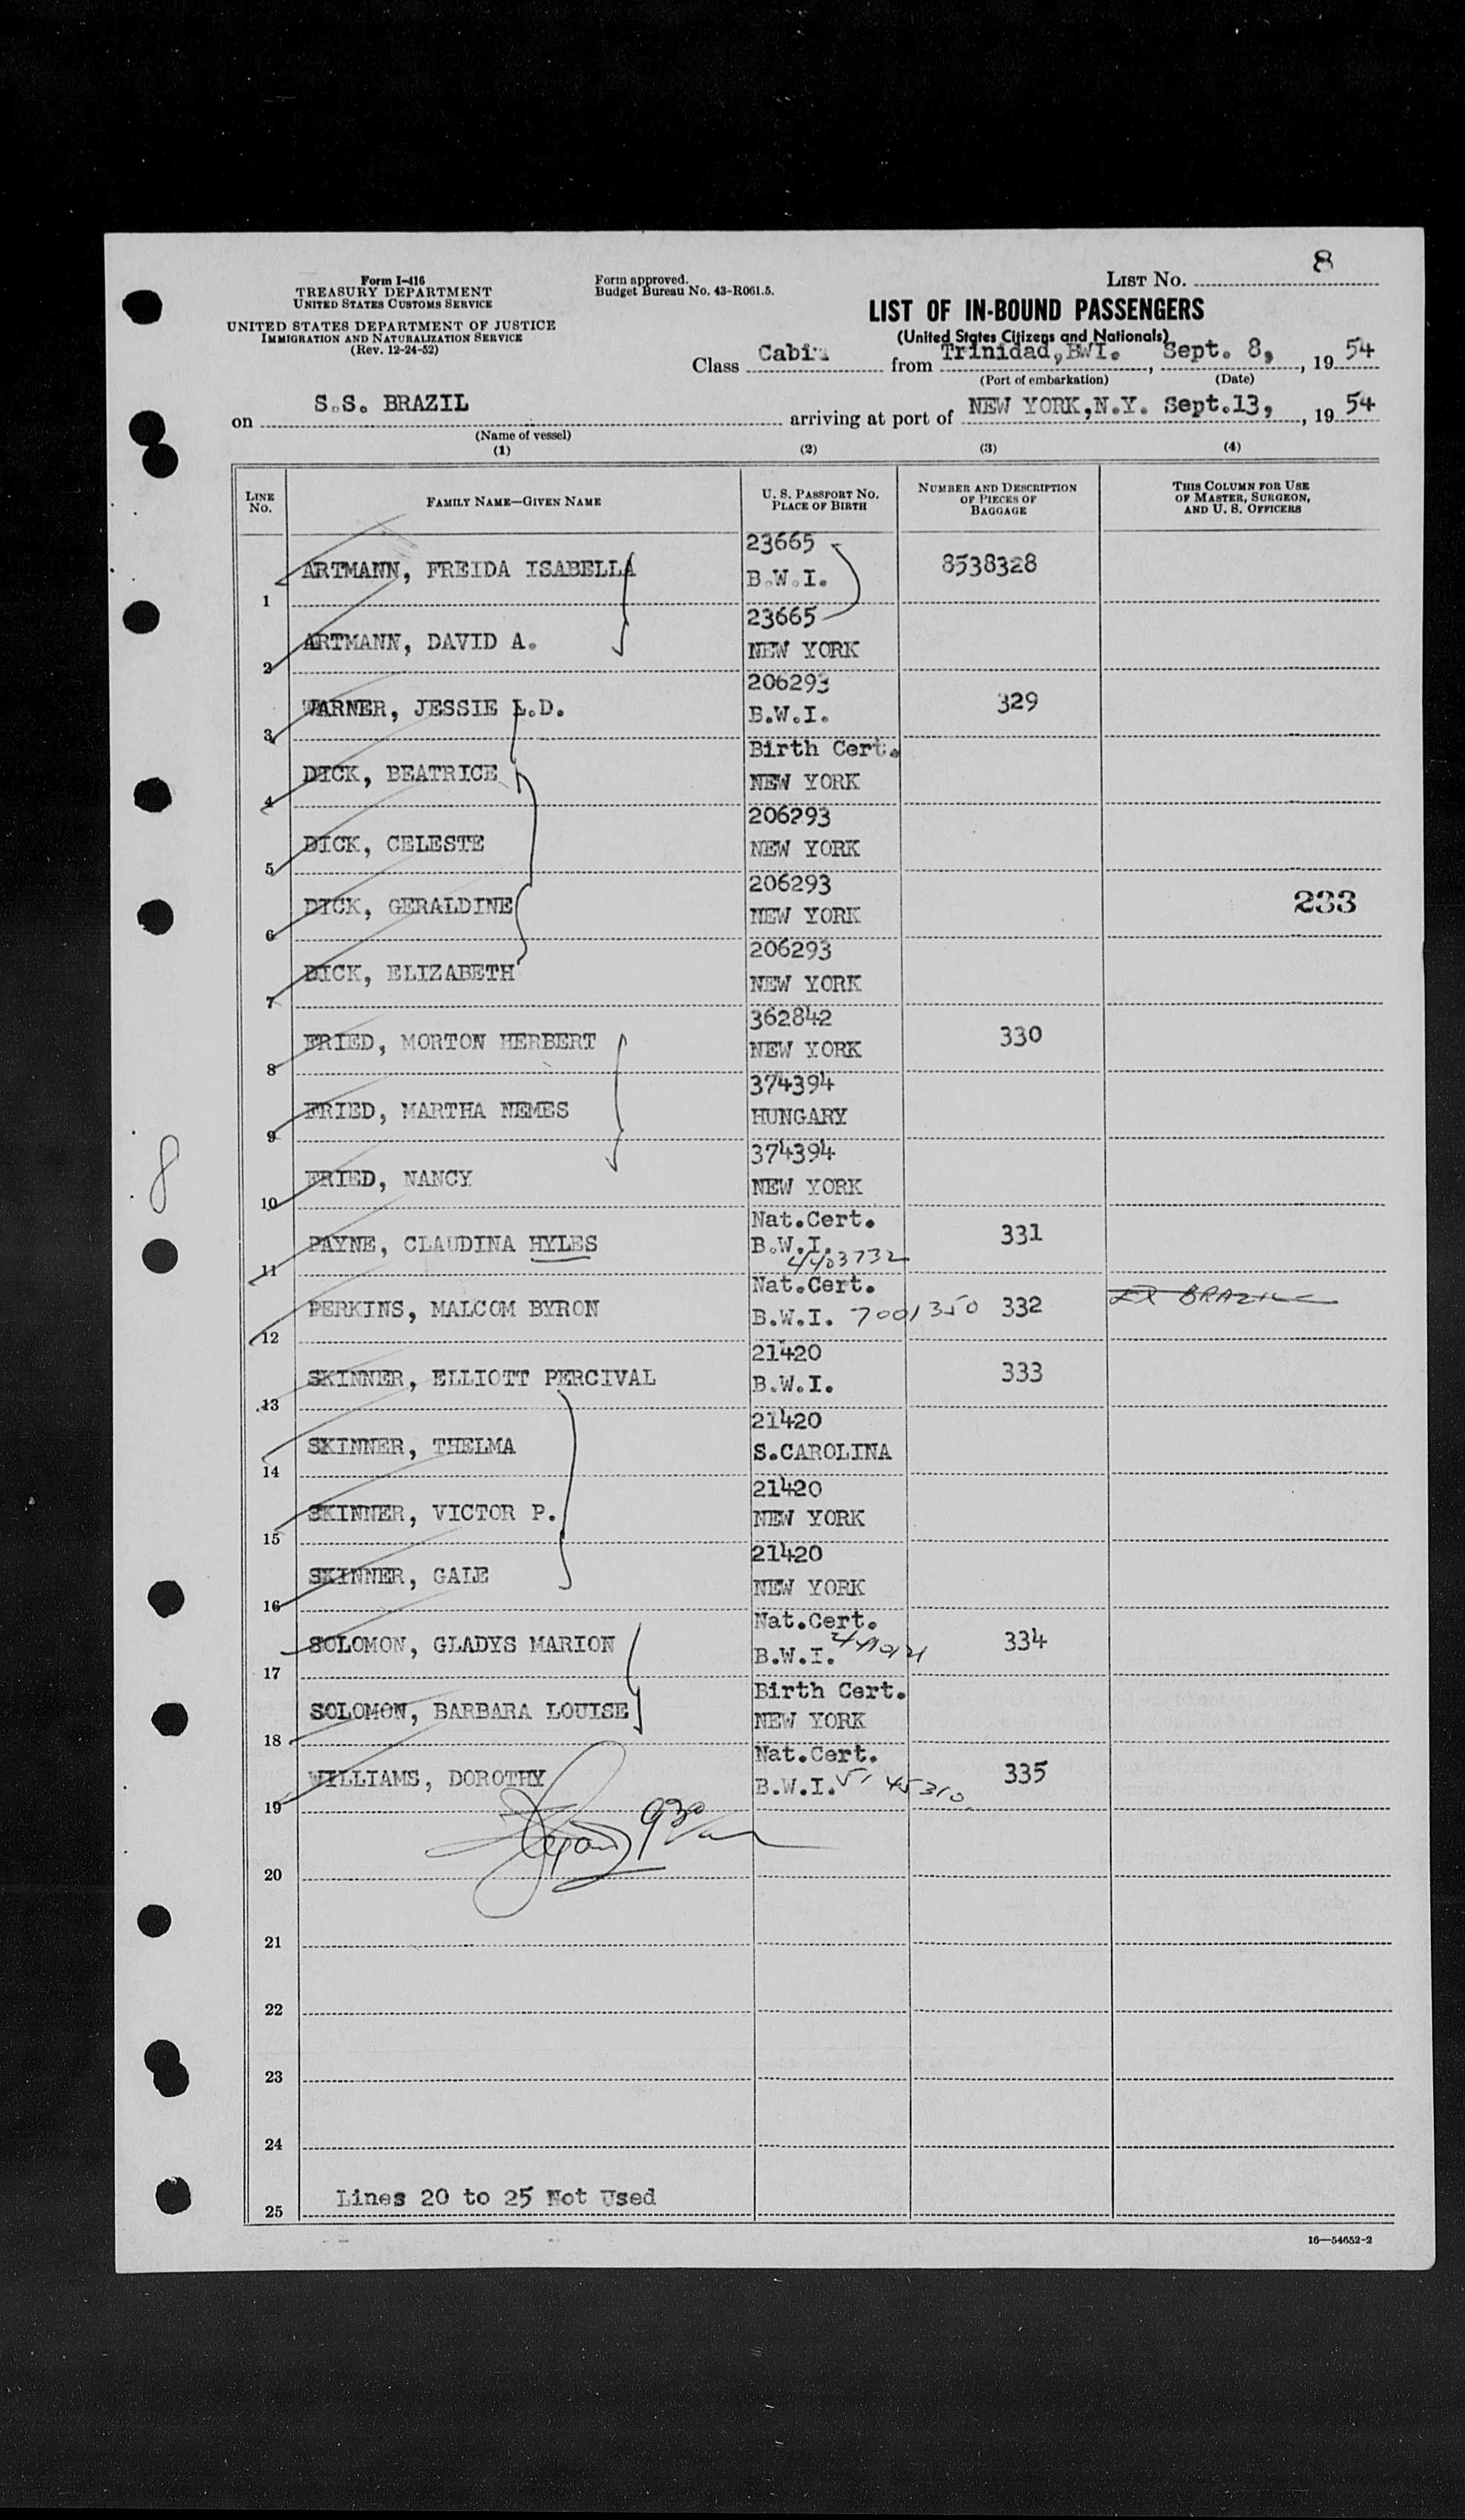 8
Form I-416
TREASURY DEPARTMENT
UNITED STATES CUSTOMS SERVICE
UNITED STATES DEPARTMENT OF JUSTICE
IMMIGRATION AND NATURALIZATION SERVICE
(Rev. 12-24-52)
Form approved.
Budget Bureau No. 43-R061.5.
LIST NO. 8
LIST OF IN-BOUND PASSENGERS
(United States Citizens and Nationals)
Class Cabin from Trinidad, BWI., Sept. 8, 1954
(Port of embarkation) (Date)
on S.S. BRAZIL arriving at port of NEW YORK, N.Y. Sept.13, 1954
(Name of vessel)
(1) (2) (3) (4)
LINE NO. FAMILY NAME—GIVEN NAME U. S. PASSPORT NO. PLACE OF BIRTH NUMBER AND DESCRIPTION OF PIECES OF BAGGAGE THIS COLUMN FOR USE OF MASTER, SURGEON, AND U. S. OFFICERS
1 ARTMANN, FREIDA ISABELLA 23665 B.W.I. 8538328
2 ARTMANN, DAVID A. 23665 NEW YORK
3 WARNER, JESSIE L.D. 206293 B.W.I. 329
4 DICK, BEATRICE Birth Cert. NEW YORK
5 DICK, CELESTE 206293 NEW YORK
6 DICK, GERALDINE 206293 NEW YORK 233
7 DICK, ELIZABETH 206293 NEW YORK
8 FRIED, MORTON HERBERT 362842 NEW YORK 330
9 FRIED, MARTHA NEMES 374394 HUNGARY
10 FRIED, NANCY 374394 NEW YORK
11 PAYNE, CLAUDINA HYLES Nat.Cert. B.W.I. 4403732 331
12 PERKINS, MALCOM BYRON Nat.Cert. B.W.I. 7001350 332 BRAZIL
13 SKINNER, ELLIOTT PERCIVAL 21420 B.W.I. 333
14 SKINNER, THELMA 21420 S.CAROLINA
15 SKINNER, VICTOR P. 21420 NEW YORK
16 SKINNER, GALE 21420 NEW YORK
17 SOLOMON, GLADYS MARION Nat.Cert. B.W.I. 334
18 SOLOMON, BARBARA LOUISE Birth Cert. NEW YORK
19 WILLIAMS, DOROTHY Nat.Cert. B.W.I. 335
20
21
22
23
24
25 Lines 20 to 25 Not Used
16—54652-2